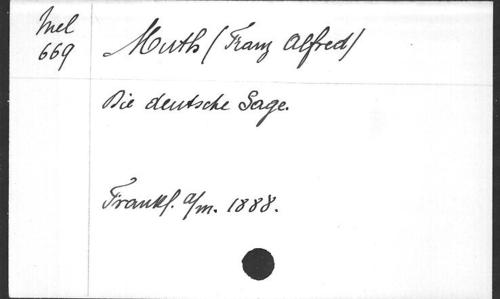 Mel
669
Muth (Franz Alfred)
Die deutsche Sage.
Frankf. a/m. 1888.